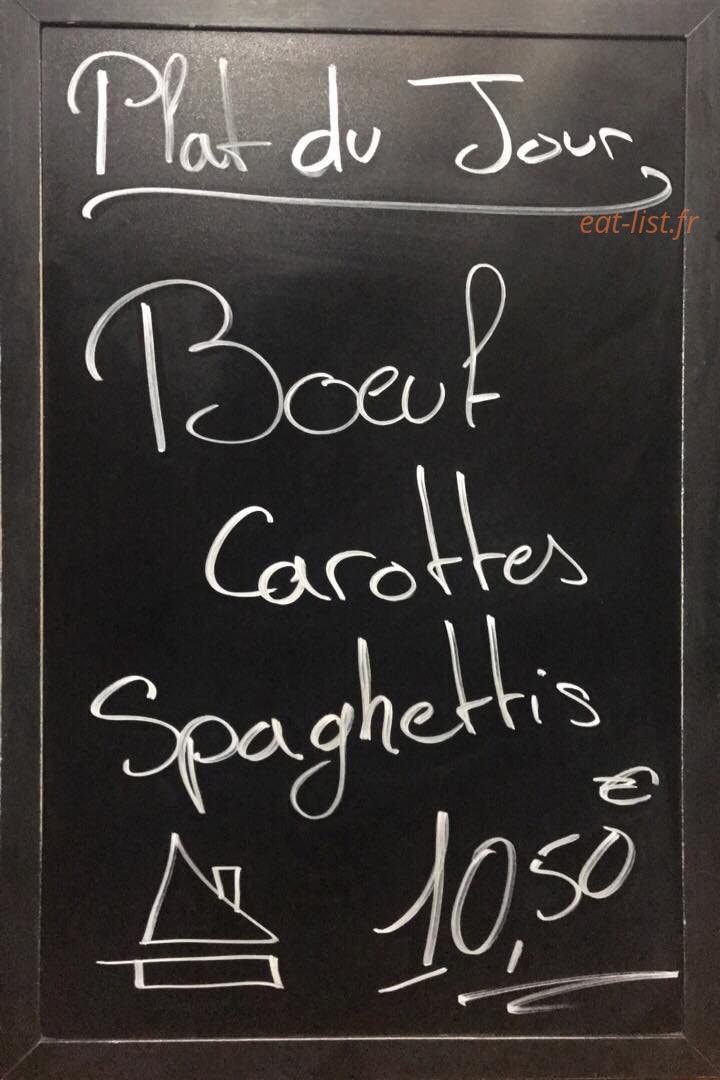 Plat du Jour
eat-list.fr
Boeuf
Carottes
Spaghettis
10,50€